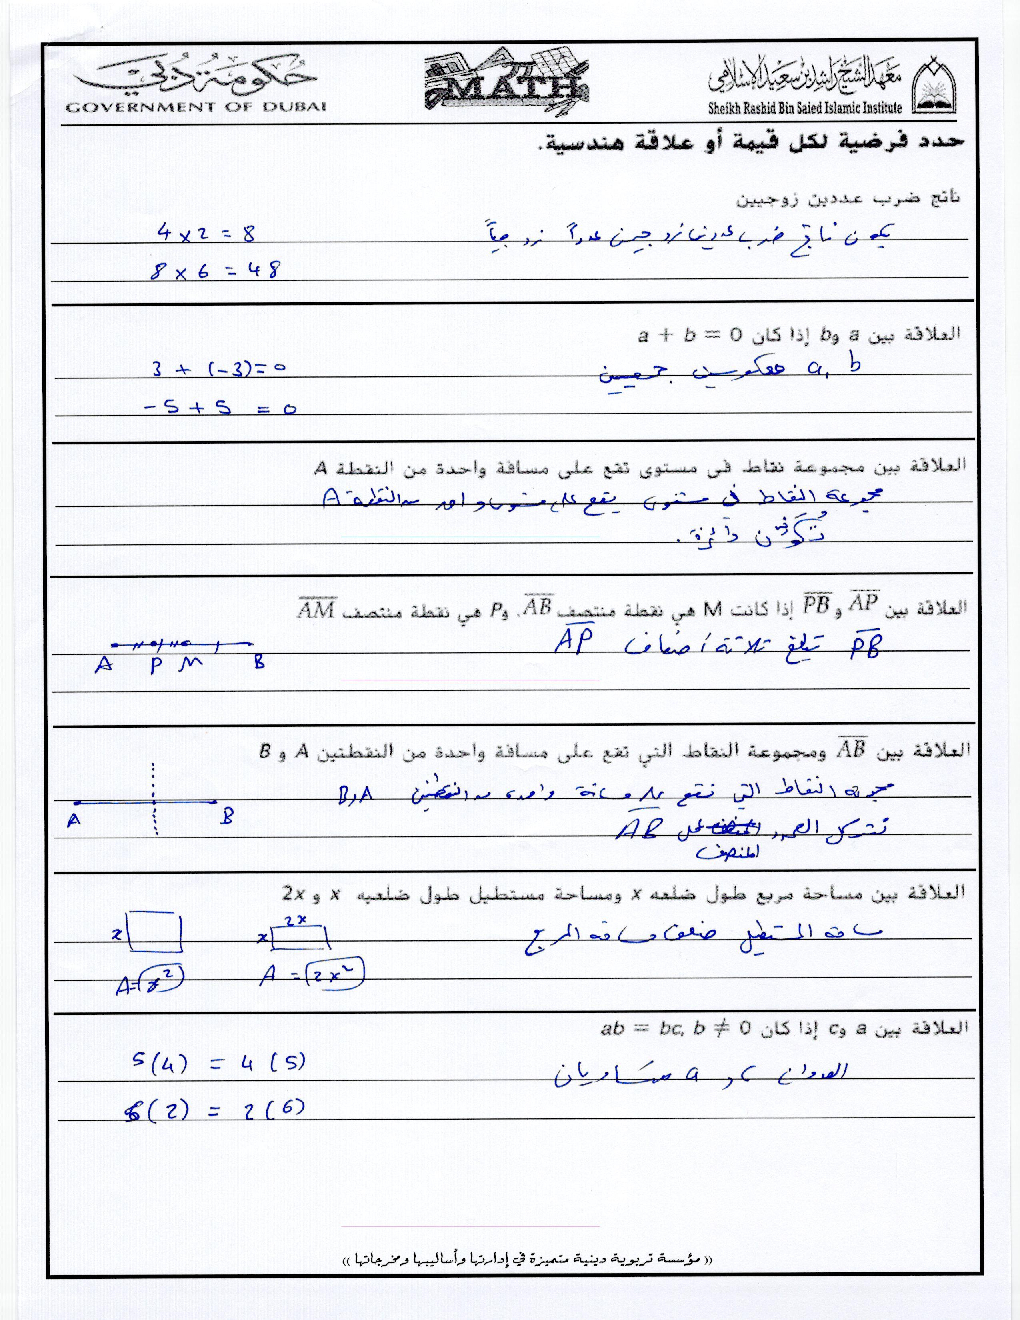 حكومة دبي
GOVERNMENT OF DUBAI
MATH
معهد الشيخ راشد بن سعيد الإسلامي
Sheikh Rashid Bin Saied Islamic Institute
حدد فرضية لكل قيمة أو علاقة هندسية.
ناتج ضرب عددين زوجيين
يكون ناتج ضرب عددين زوجيين عدداً زوجياً
4 x 2 = 8
8 x 6 = 48
العلاقة بين a وb إذا كان a + b = 0
a, b معكوسين جمعيين
3 + (-3) = 0
-5 + 5 = 0
العلاقة بين مجموعة نقاط في مستوى تقع على مسافة واحدة من النقطة A
مجموعة النقاط في مستوى يقع على مستوى واحد من النقطة A
تُكَوِّن دائرة.
العلاقة بين AP و PB إذا كانت M هي نقطة منتصف AB، وP هي نقطة منتصف AM
PB تبلغ ثلاثة أضعاف AP
A P M B
العلاقة بين AB ومجموعة النقاط التي تقع على مسافة واحدة من النقطتين A و B
مجموعة النقاط التي تقع على مسافة واحدة من النقطتين A و B
تشكل العمود المنصف على AB
A B
العلاقة بين مساحة مربع طول ضلعه x ومساحة مستطيل طول ضلعيه x و 2x
مساحة المستطيل ضعف مساحة المربع
x
2x
x
A = x²
A = 2x²
العلاقة بين a وc إذا كان ab = bc, b ≠ 0
العددان a و c متساويان
5(4) = 4(5)
6(2) = 2(6)
(( مؤسسة تربوية دينية متميزة في إدارتها وأساليبها ومخرجاتها ))